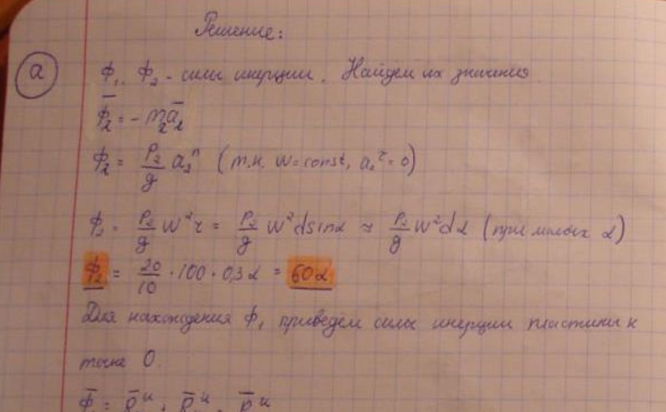 Решение:
а
Ф₁, Ф₂ - силы инерции. Найдем их значения
Ф̄₂ = - m₂ā₂
Ф₂ = P₂/g a₂ⁿ (т.к. w=const, a₂^τ=0)
Ф₂ = P₂/g w²r = P₂/g w²dsinα ≈ P₂/g w²dα (при малых α)
Ф₂ = 20/10 · 100 · 0,3α = 60α
Для нахождения Ф₁ приведём силы инерции пластины к
точке О.